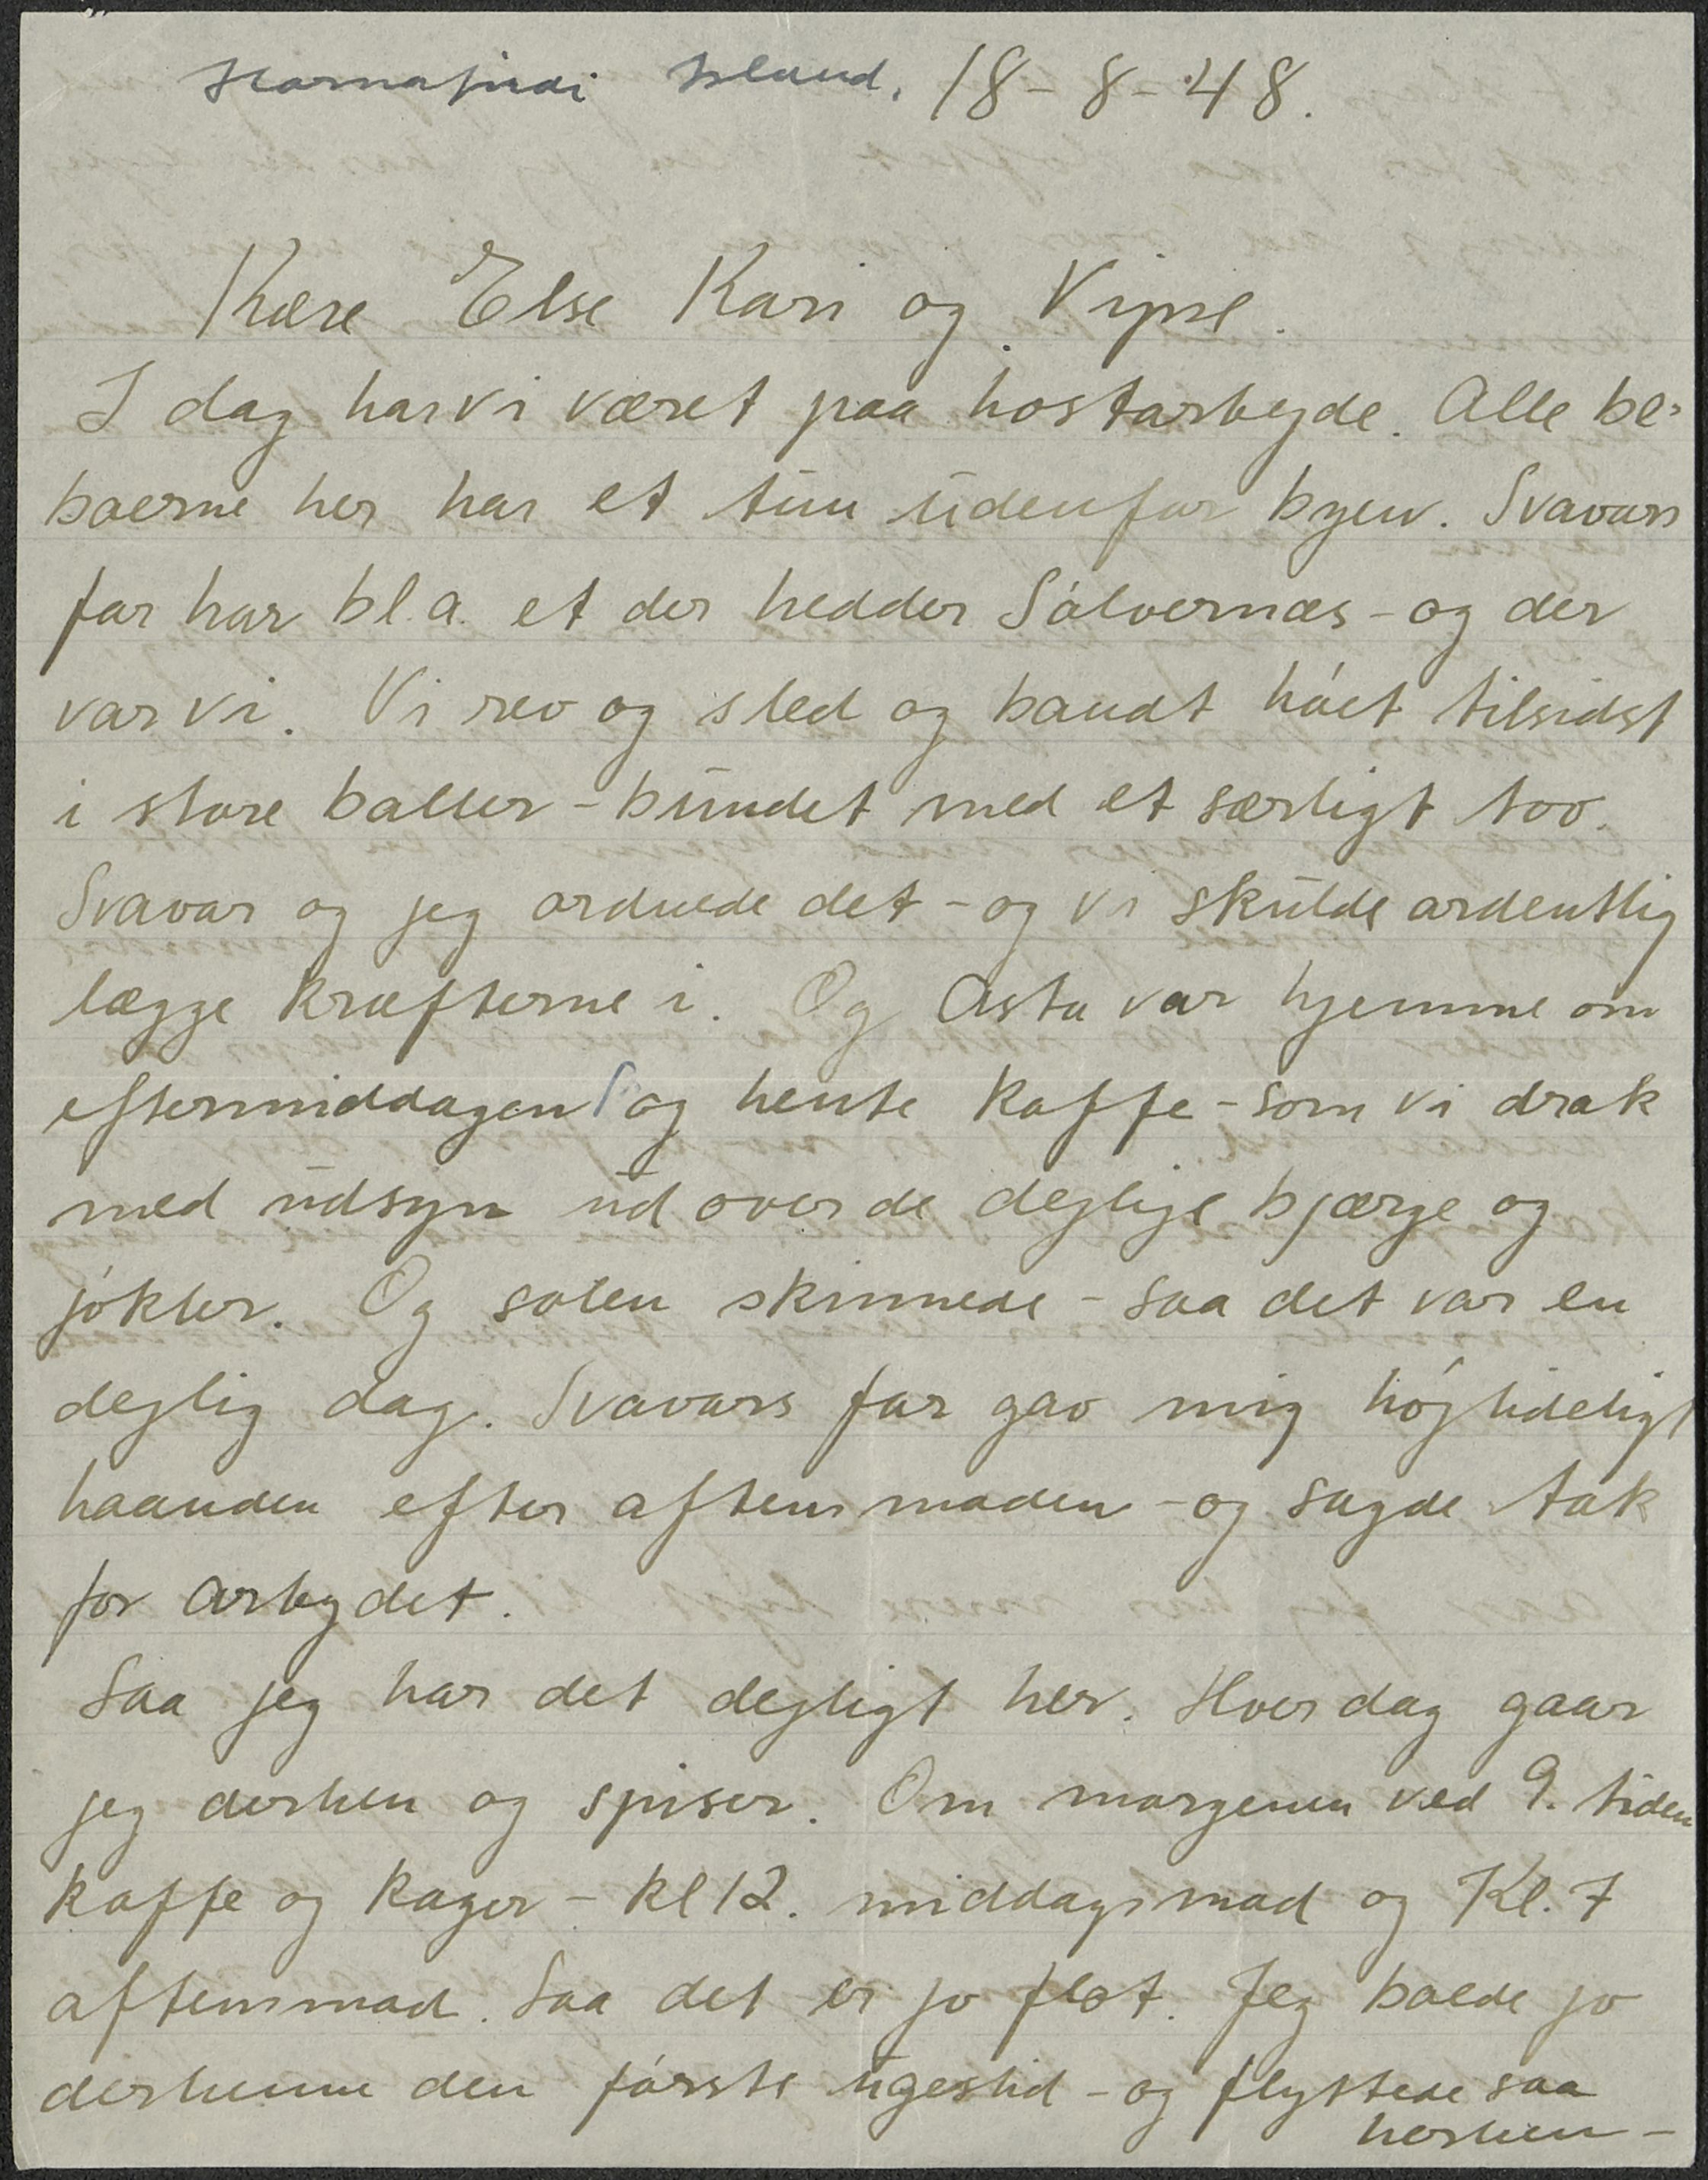 Hornafirdi Island. 18-8-48.
Kære Else Kari og Vipse.
I dag har vi været paa hostarbejde. Alle be-
boerne her har et tun udenfor byen. Svavars
far har bl.a. et der hedder Sólvernæs - og der
var vi. Vi rev og sled og bandt hóet tilsidst
i store baller - bundet med et særligt tov.
Svavar og jeg ordnede det - og vi skulde ordentlig
lægge kræfterne i. Og Asta var hjemme om
eftermiddagen og hente kaffe - som vi drak
med udsyn ud over de dejlige bjærge og
jökler. Og solen skinnede - saa det var en
dejlig dag. Svavars far gav mig hójtideligt
haanden efter aftensmaden - og sagde tak
for arbejdet.
Saa jeg har det dejligt her. Hver dag gaar
jeg derhen og spiser. Om morgenen ved 9. tiden
kaffe og kager - kl 12. middagsmad og Kl. 7
aftensmad. Saa det er jo flot. Jeg boede jo
derhenne den fórste ugestid - og flyttede saa
herhen -